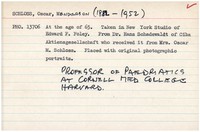 SCHLOSS, Oscar, MENDERSON (1882 - 1952)
PHO. 13706 At the age of 65. Taken in New York Studio of
Edward F. Foley. From Dr. Hans Schadewaldt of Ciba
Aktiengesellschaft who received it from Mrs. Oscar
M. Schloss. Placed with original photographic
portraits.
PROFESSOR OF PAEDIATRICS
AT CORNELL MED COLLEGE
HARVARD.